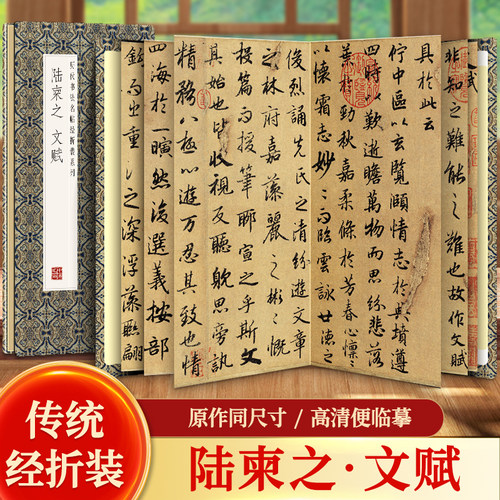 陆柬之 文赋
非知之難能之難也故作文賦
具於此云
佇中區以玄覽頤情志於典墳遵
四時以歎逝瞻萬物而思紛悲落
葉於勁秋嘉柔條於芳春心懍々
以懷霜志眇々而臨雲詠世德之
俊烈誦先民之清芬遊文章
之林府嘉藻麗之彬々慨
投篇而援筆聊宣之乎斯文
其始也皆收視反聽耽思傍訊
精騖八極心遊萬仞其致也情
四海於一瞬然後選義按部
之深浮藻聯翩
传统
经折装
原作同尺寸 / 高清便临摹
陆柬之·文赋